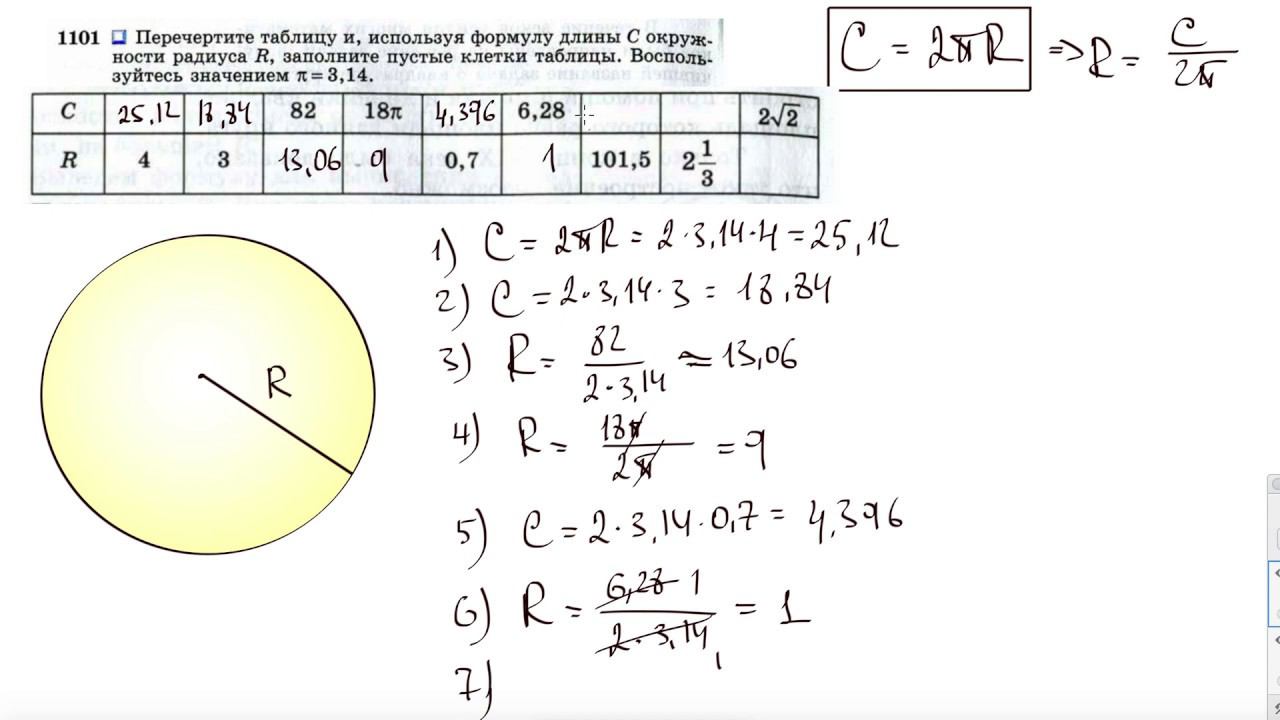 1101 Перечертите таблицу и, используя формулу длины C окруж-
ности радиуса R, заполните пустые клетки таблицы. Восполь-
зуйтесь значением π = 3,14.
C = 2πR ⇒ R = C/2π
C 25,12 18,84 82 18π 4,396 6,28 2√2
R 4 3 13,06 9 0,7 1 101,5 2 1/3
R
1) C = 2πR = 2·3,14·4 = 25,12
2) C = 2·3,14·3 = 18,84
3) R = 82/2·3,14 ≈ 13,06
4) R = 18π/2π = 9
5) C = 2·3,14·0,7 = 4,396
6) R = 6,28 1/2·3,14 1 = 1
7)